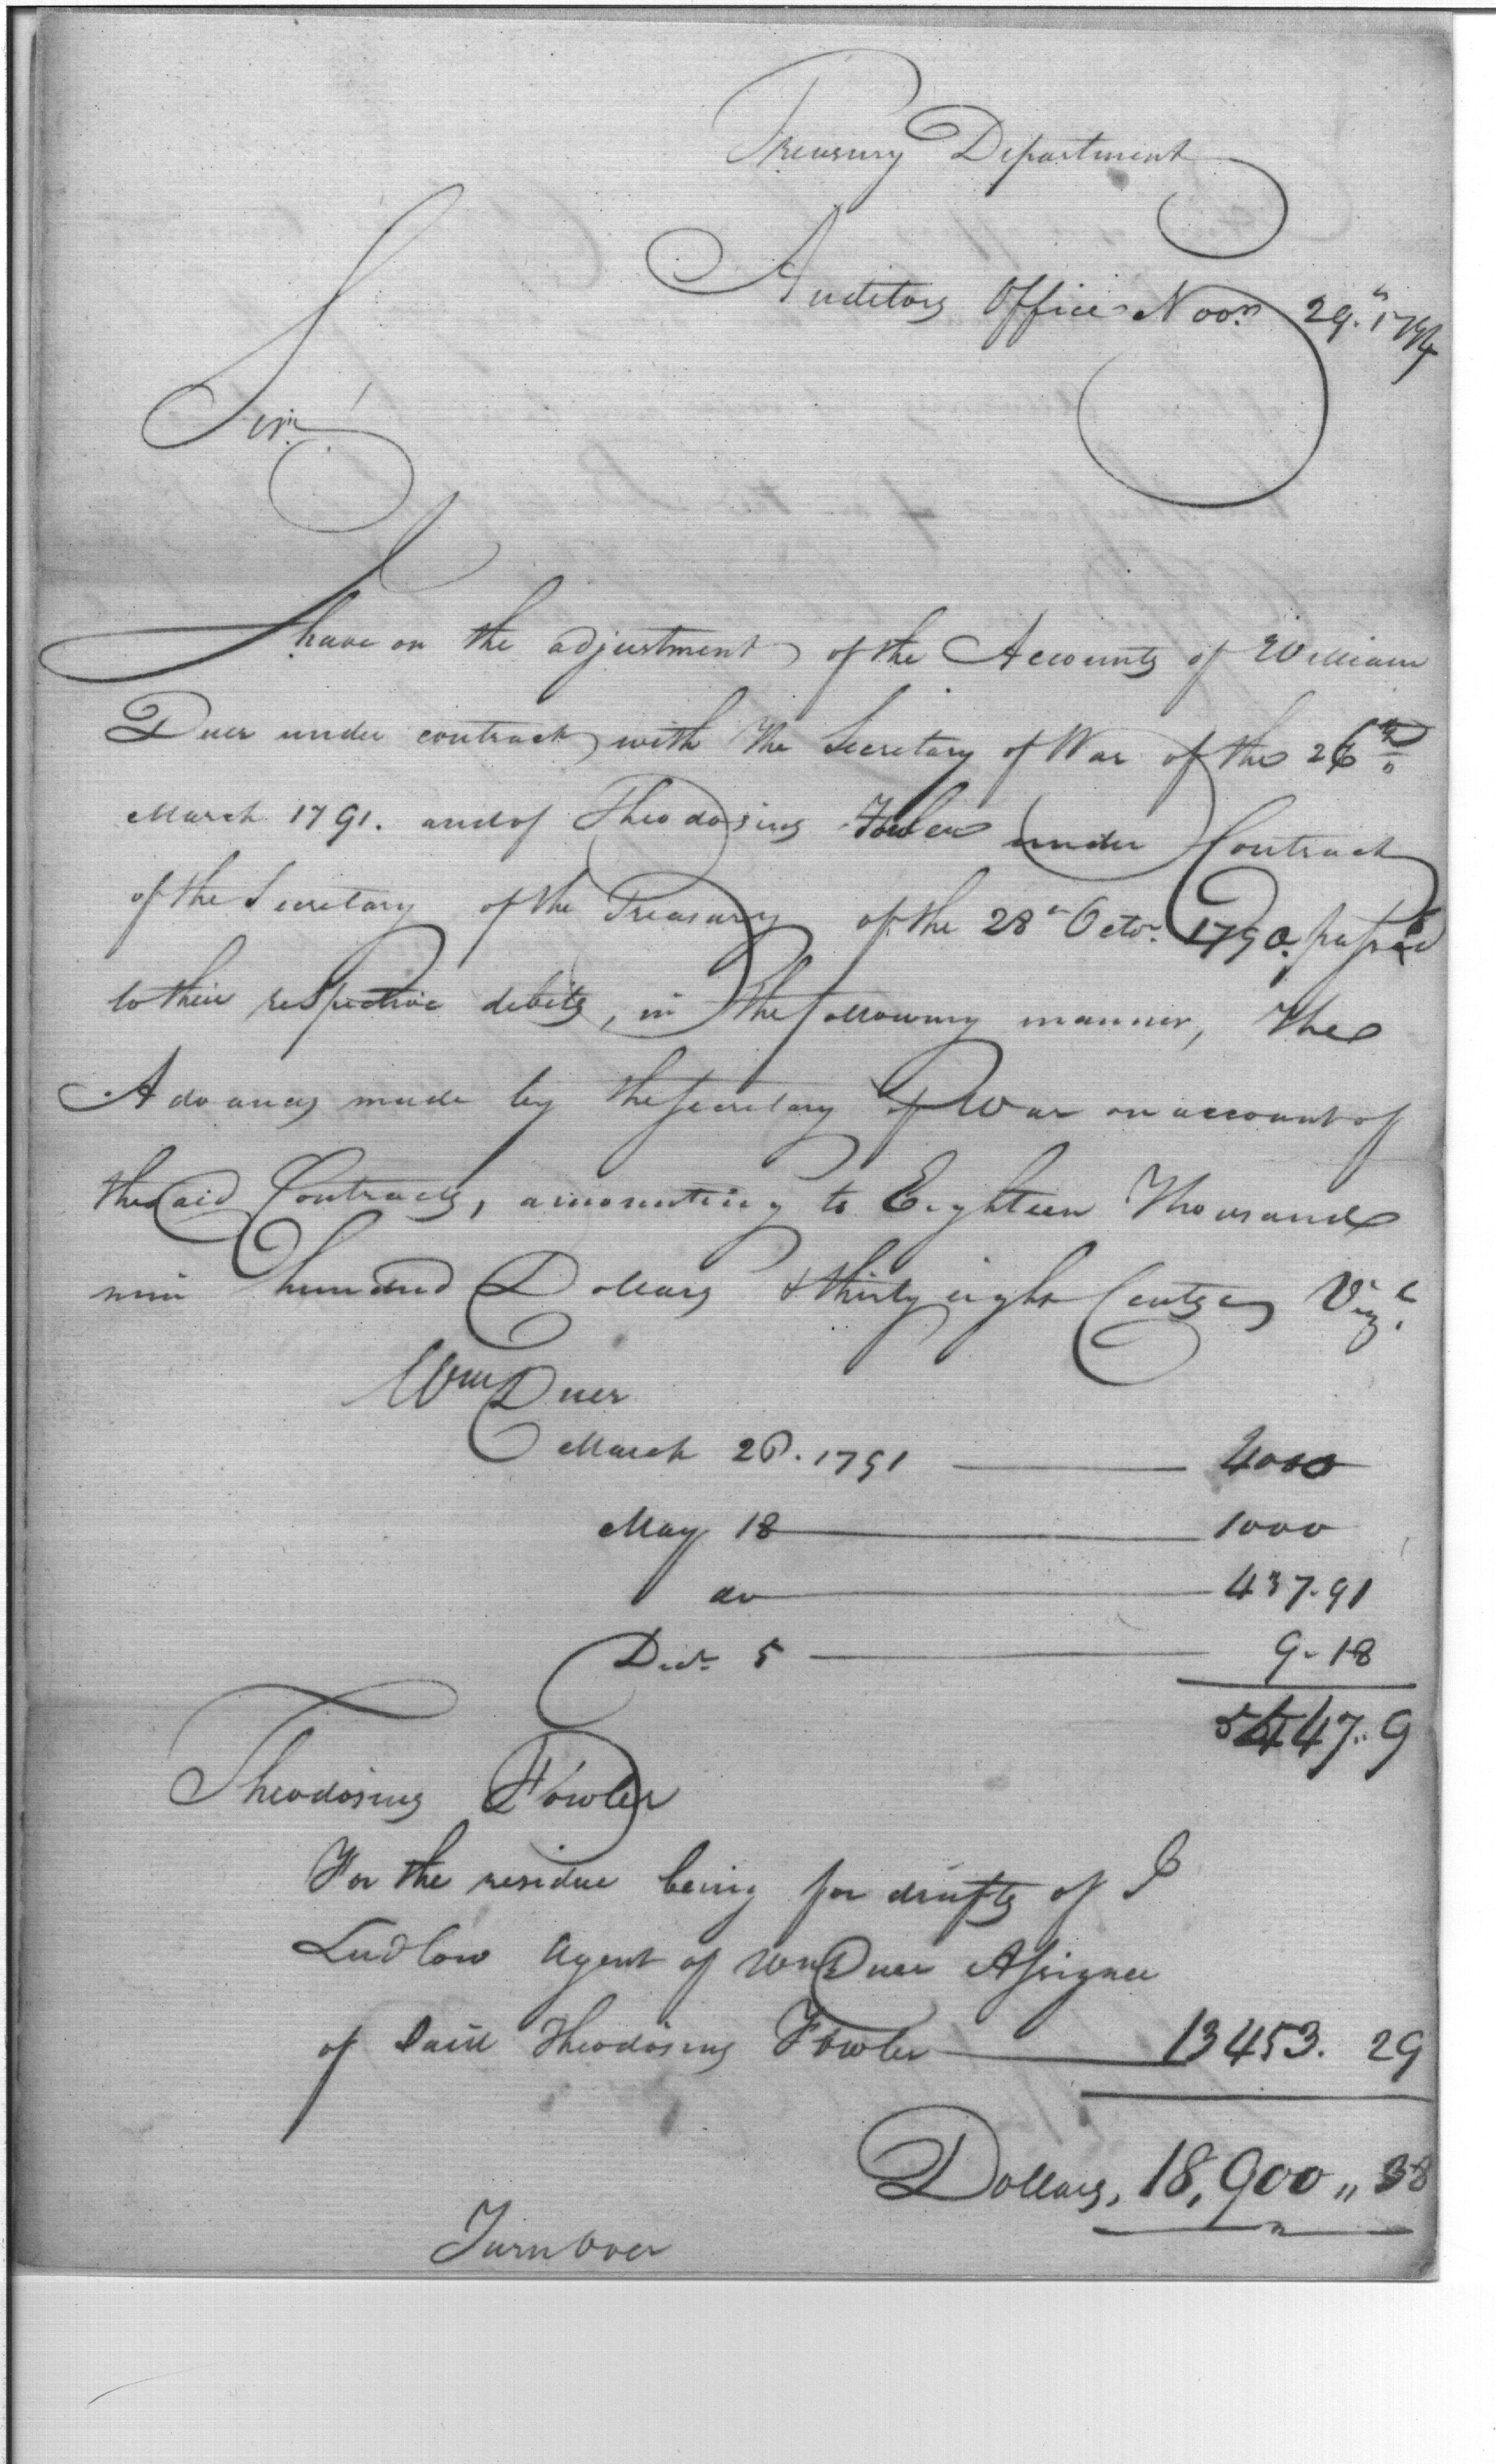 Treasury Department
Auditors Office Novr. 29th 1794
Sir
I have on the adjustment of the Accounts of William
Duer under contract with the Secretary of War of the 26th
March 1791. and of Theodosius Fowler under Contract
of the Secretary of the Treasury of the 28th Octor. 1790. passed
to their respective debits, in the following manner, the
Advances made by the Secretary of War on account of
the said Contracts, amounting to Eighteen Thousand
nine hundred Dollars & thirty eight Cents Vizt.
Wm Duer
March 26. 1791 4000
May 18 1000
do 437.91
Decr 5 9.18
5447.. 9
Theodosius Fowler
For the residue being for drafts of
Ludlow Agent of Wm Duer Assignee
of said Theodosius Fowler 13453. 29
Dollars, 18,900 ,, 38
Turn Over